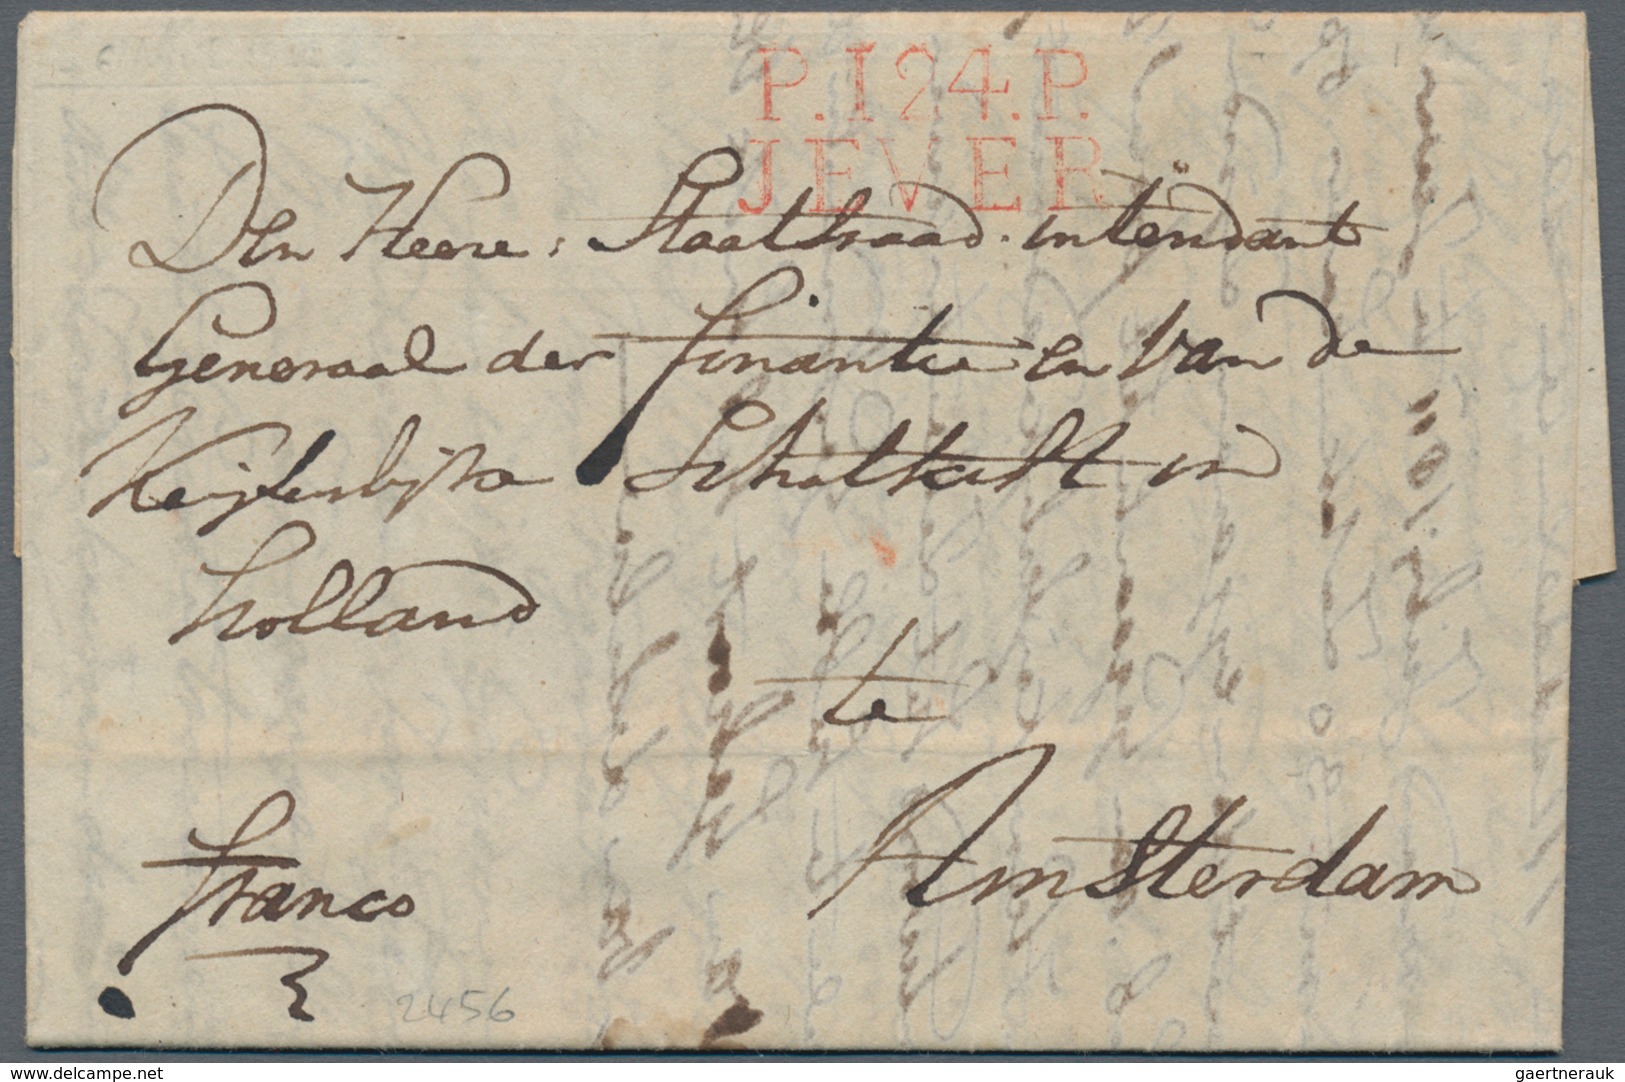 P.124.P.
JEVER
Den Heere, Staatsraad intendant
Generaal der finantie en van de
Keijserlijke Schatkist in
Holland
te
Amsterdam
franco
2456
www.delcampe.net
gaertnerauk